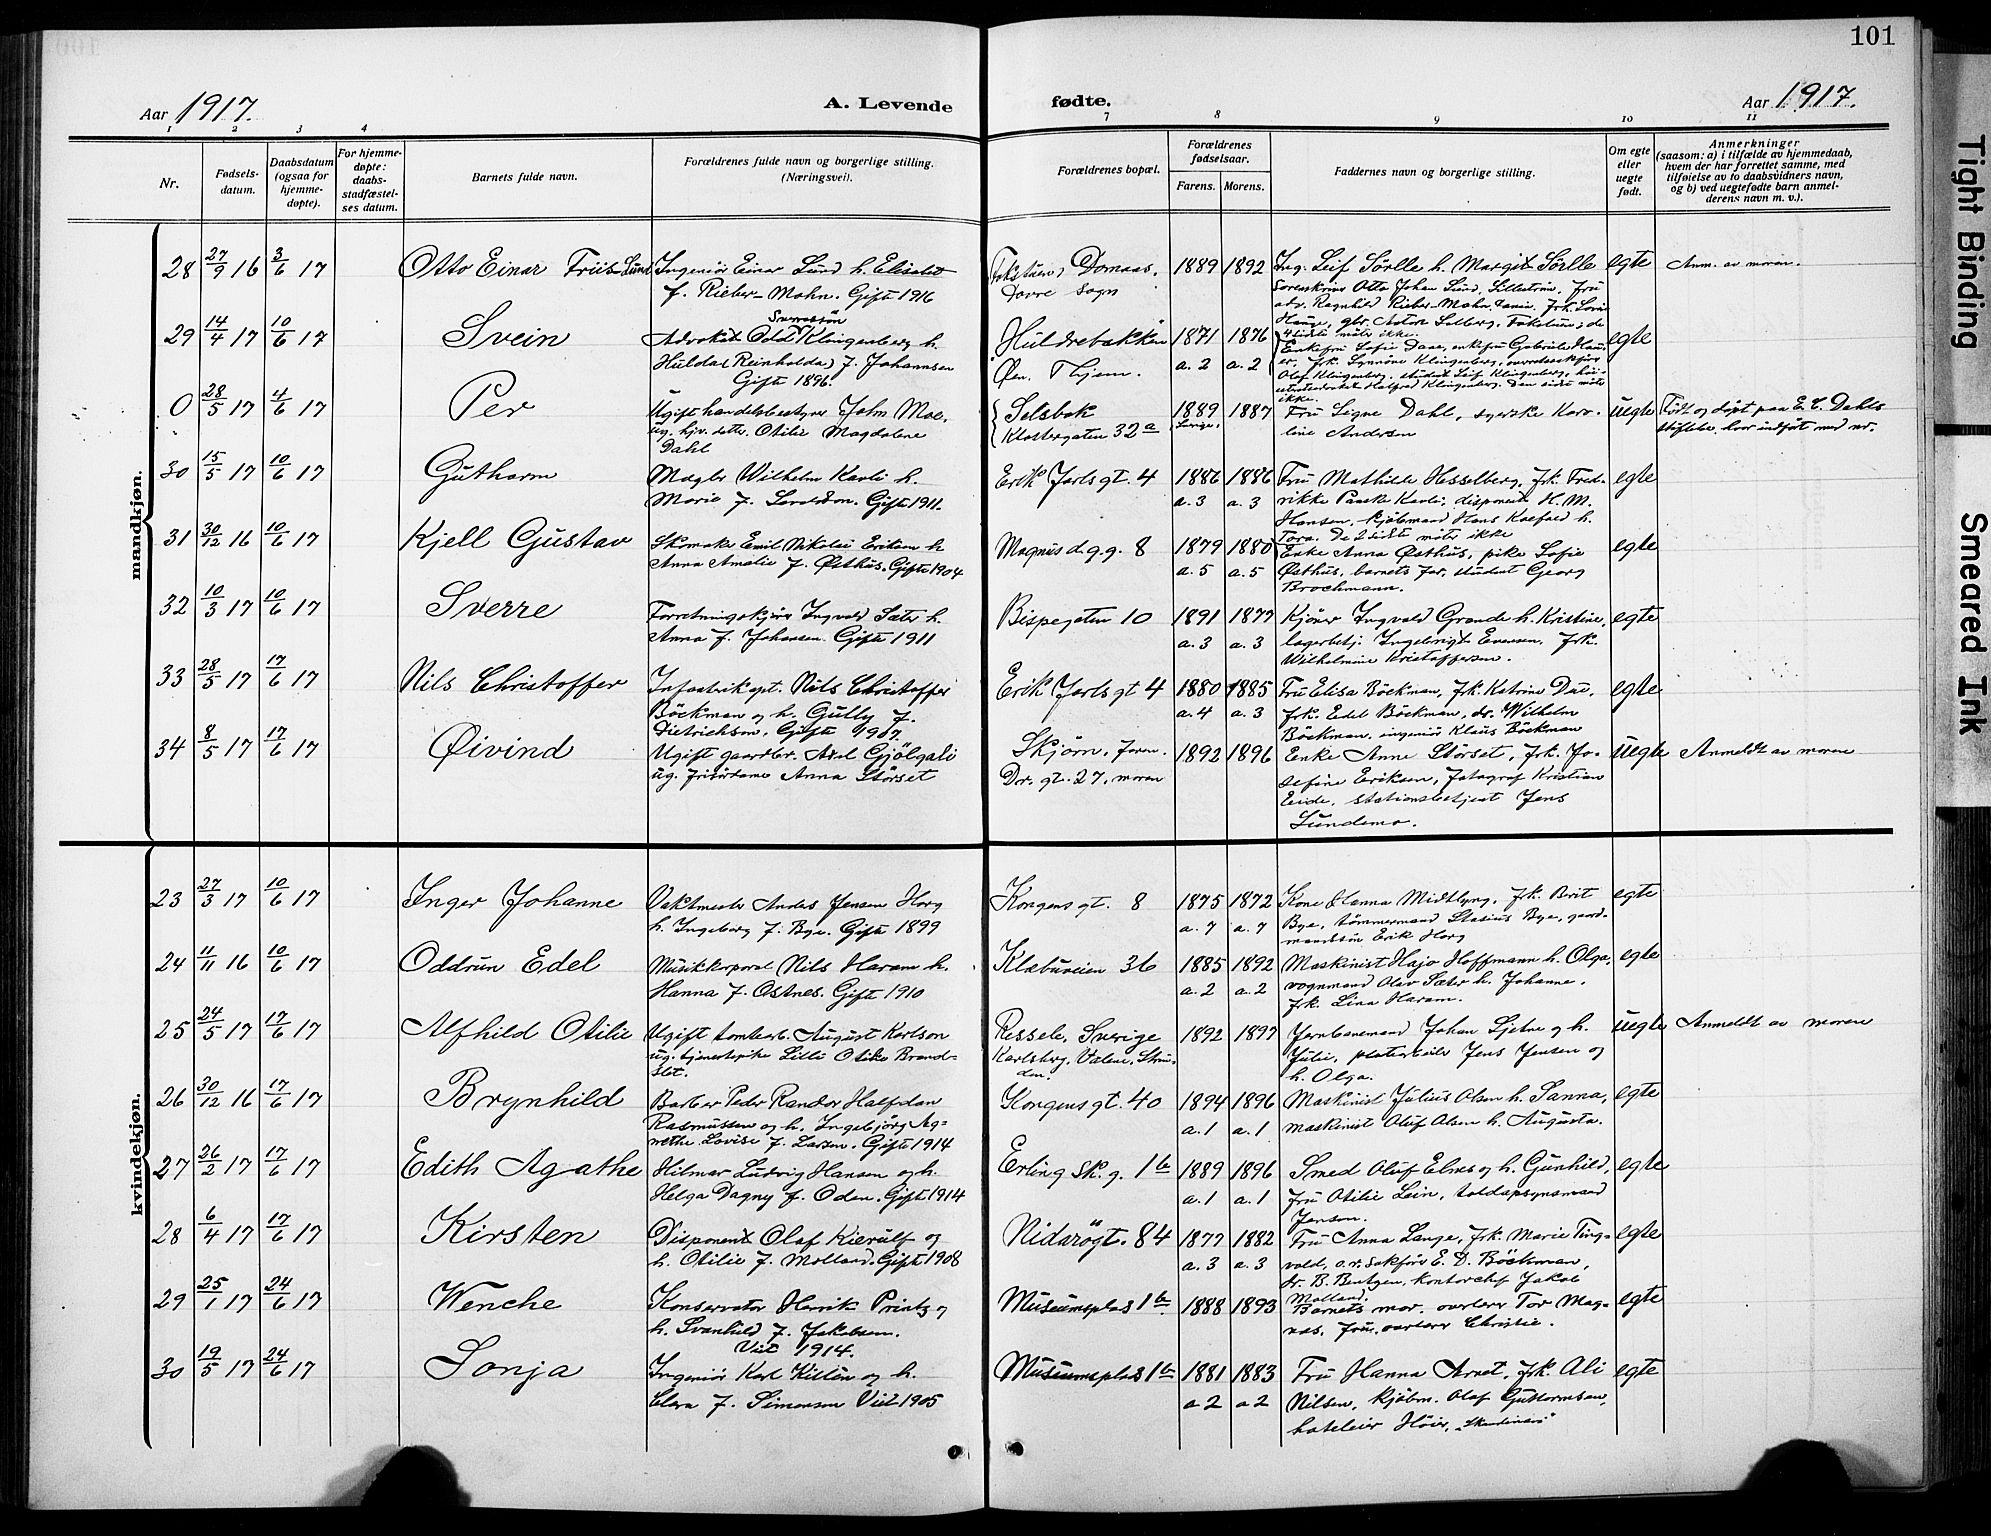 101
Aar 1917.
A. Levende
fødte.
Aar 1917.
1 2 3 4 7 8 9 10 11
Nr.
Fødsels-
datum.
Daabsdatum
(ogsaa for
hjemme-
døpte).
For hjemme-
døpte:
daabs-
stadfæstel-
ses datum.
Barnets fulde navn.
Forældrenes fulde navn og borgerlige stilling.
(Næringsvei).
Forældrenes bopæl.
Forældrenes
fødselsaar.
Farens. Morens.
Faddernes navn og borgerlige stilling.
Om egte
eller
uegte
født.
Anmerkninger
(saasom: a) i tilfælde av hjemmedaab,
hvem der har forrettet samme, med
tilføielse av to daabsvidners navn,
og b) ved uegtefødte barn anmel-
derens navn m. v.).
mandkjøn.
28 27/9 16 3/6 17 Otto Einar Friis-Lund Ingeniør Einar Lund h. Elisabet Fokstuen, Domaas, 1889 1892 Ing. Leif Sörlle h. Margit Sörlle egte Anm. av moren.
f. Rieber-Mohn. Gift 1916 Dovre sogn Sorenskriver Otto Johan Lund, Lillestrøm, fru
adv. Ragnhild Rieber-Mohn
29 14/4 17 10/6 17 Svein Advokat Odd Sverresøn Klingenberg h. Huldrebakken 1871 1876 egte
Hulda (Reinholda) f. Johannsen Øen. Thjem. a. 2 a. 2
Gift 1896. Olaf Klingenberg, student Leif Klingenberg, høi-
esteretsadvokat Halfred Klingenberg. Den sidste møtte
ikke.
0 28/5 17 4/6 17 Per Ugift handelsbestyrer John Moe, Selsbak 1889 1887 Fru Signe Dahl, syerske Karo- uegte Født og døpt paa E. C. Dahls
ug. hjv. datter Otilie Magdalene Klostergaten 32a line Andersen stiftelse, hvor indført med nr.
Dahl
30 15/5 17 10/6 17 Guthorm Mægler Wilhelm Kavli h. Erik Jarls gt. 4 1886 1886 Fru Mathilde Hesselberg, frk. Fred- egte
Marie f. Gift 1911. a. 3 a. 3 rikke Paaske Kavli, disponent H. M.
Hansen, kjøbmand Hans Kaefoed h.
Tora. De 2 sidste møtte ikke
31 30/12 16 10/6 17 Kjell Gustav Skomaker Emil Nikolai Eriksen h. Magnus d.g.g. 8 1879 1880 Enke Anna Østhus, pike Sofie egte
Anna Amalie f. Østhus. Gift 1904 a. 5 a. 5 Østhus, barnets far, student Georg
Brochmann.
32 10/3 17 10/6 17 Sverre Forretningskjører Ingvald Sæter h. Bispegaten 10 1891 1877 Kjører Ingvald Grande h. Kristine, egte
Anna f. Johansen. Gift 1911 a. 3 a. 3 lagerbetj. Ingebrigt Evensen, frk.
Wilhelmine Kristoffersen.
33 28/5 17 17/6 17 Nils Christoffer Infanterikapt. Nils Christoffer Erik Jarls gt 4 1880 1885 Fru Elisa Böckman, frk. Katrine Due, egte
Böckman og h. Gully f. a. 4 a. 3 frk. Edel Böckman, dr. Wilhelm
Dietrichson. Gift 1907. Böckman, ingeniør Klaus Böckman
34 8/5 17 17/6 17 Øivind Ugift gaardbr. Axel Gjölgali Skjörn, faren. 1892 1896 Enke Anne Störset, frk. Jo- uegte Anmeldt av moren
ug. frisördame Anna Störset Dr. gt. 27, moren sefine Eriksen, fotograf Kristian
Eide, stationsbetjent Jens
Sundemo.
kvindekjøn.
23 27/3 17 10/6 17 Inger Johanne Vaktmester Anders Jensen Horg Kongens gt. 8 1875 1872 Kone Hanna Midtlyng, frk. Berit egte
h. Ingeborg f. Bye. Gift 1899 a. 7 a. 7 Bye, tömmermand Stasius Bye, gaard-
mandssön Erik Horg
24 11/11 16 10/6 17 Oddrun Edel Musikkorporal Nils Haram h. Klæbuveien 36 1885 1892 Maskinist Hajo Hoffmann h. Olga, egte
Hanna f. Ostnes. Gift 1910 a. 2 a. 2 vognmand Olav Sæter h. Johanne.
frk. Lina Haram.
25 24/5 17 17/6 17 Alfhild Otilie Ugift tomtearb. August Karlson Ressele, Sverige 1892 1897 Jernbanemand Johan Sjetne og h. uegte Anmeldt av moren
ug. tjenestepike Lilli Otilie Brand- Karlsberg, Valene, Strin- Julie, Jens Jensen og
slet. den. h. Olga.
26 30/12 16 17/6 17 Brynhild Barber Peder Randor Halfdan Kongens gt. 40 1894 1896 Maskinist Julius Olsen h. Sanna, egte
Rasmussen og h. Ingebjørg Ag- a. 1 a. 1 maskinist Oluf Olsen h. Augusta.
nethe Lovise f. Larsen. Gift 1914
27 26/2 17 17/6 17 Edith Agathe Hilmar Ludvig Hansen og h. Erling Sk. g. 1b 1889 1896 Smed Oluf Elms og h. Gunhild, egte
Helga Dagny f. Oden. Gift 1914 a. 1 a. 1 fru Otilie Lein, toldopsynsmand
Jenson.
28 6/4 17 17/6 17 Kirsten Disponent Olaf Kierulf og Nidarögt. 84 1877 1882 Fru Anna Lange, frk. Marie Ting- egte
h. Otilie f. Molland. Gift 1908 a. 3 a. 3 vold, o.r. sakfører E. D. Böckman,
dr. B. Bentzen, kontorchef Jakob
Molland.
29 25/1 17 24/6 17 Wenche Konservator Henrik Printz og Museumsplas 1b 1888 1893 Barnets mor, overlærer Tor Mag- egte
h. Svanhild f. Jakobsen. nus, frue, overlærer Christie.
Viet 1914.
30 19/5 17 24/6 17 Sonja Ingeniør Karl Killin og h. Museumsplas 1b 1881 1883 Fru Hanna Arnet, frk. Ali egte
Clara f. Simonsen Viet 1905 a 2 a 2 Nilsen, kjøbm. Olaf Guttormsen,
hoteleier Høier, „Skandinavi"
Tight Binding
Smeared Ink